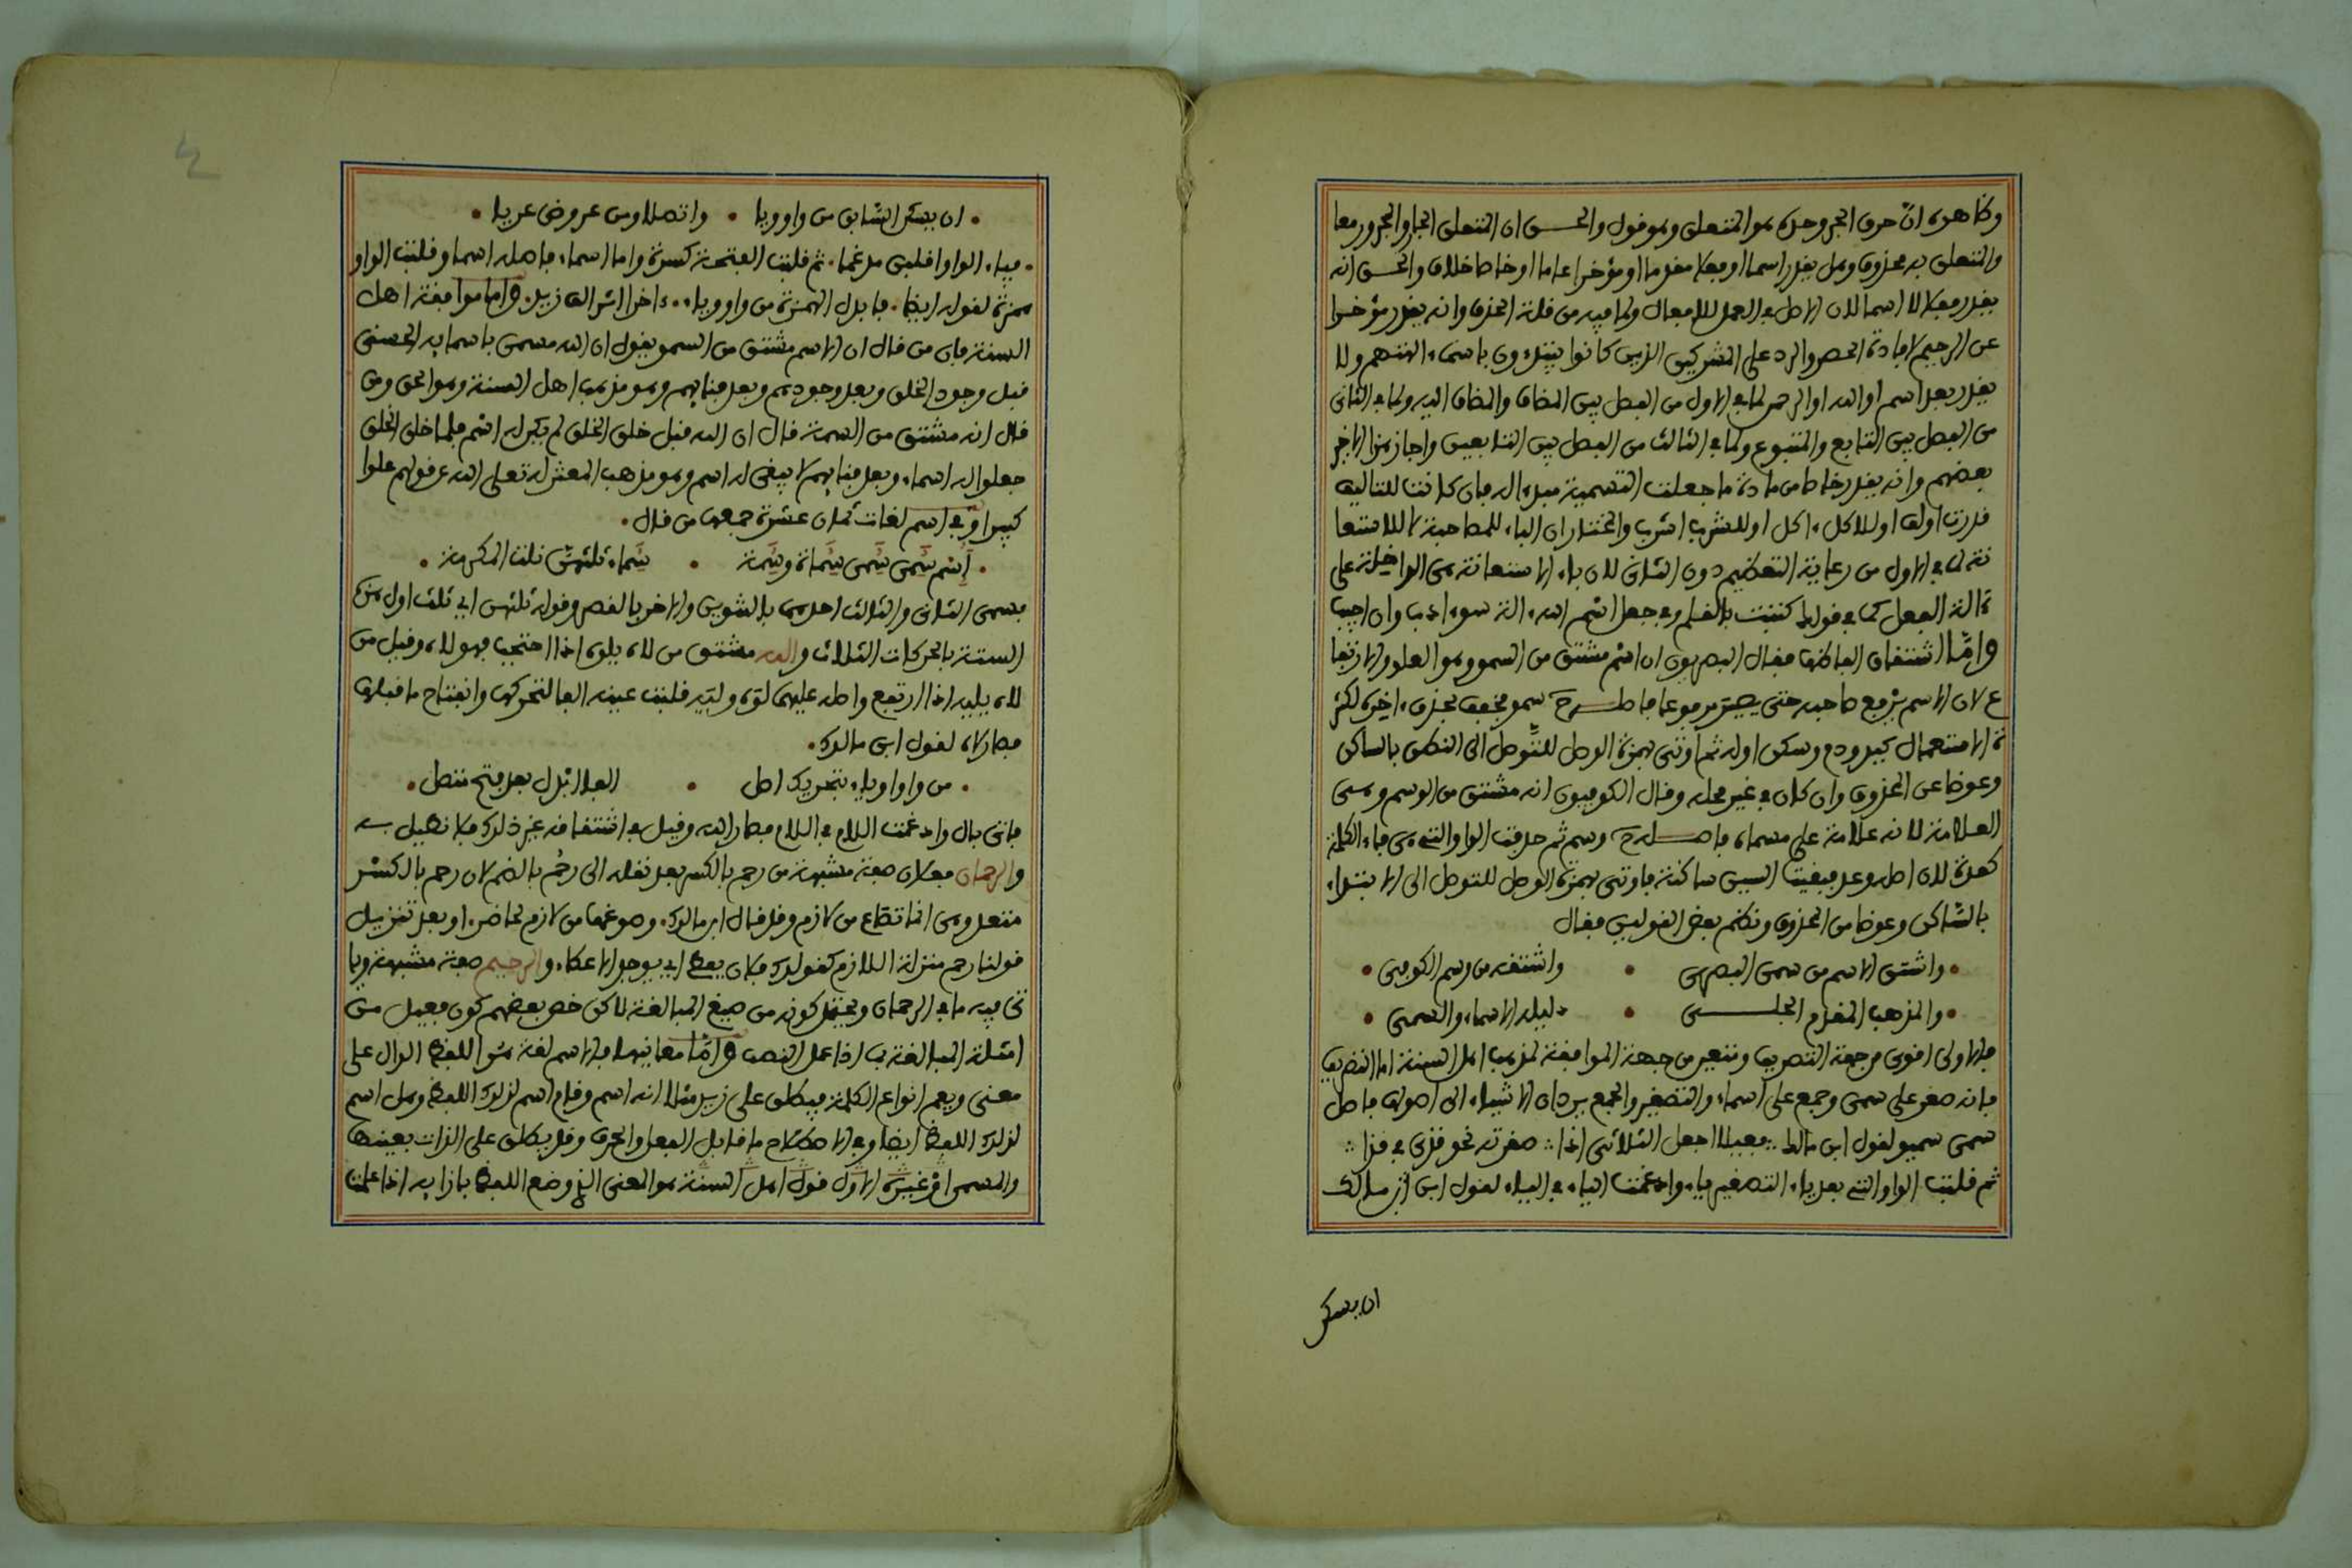 وظاهره ان حرف الجر وحده هو المتعلق وهو قول والحسن ان المتعلق الجار والمجرور معا
والمتعلق به محذوف وهل يقدر اسما او فعلا مقدما او مؤخرا عاما او خاصا خلاف والحسن انه
يقدر فعلا لا اسما لان الاصل في العمل للافعال ولما فيه من قلة الحذف وانه يقدر مؤخرا
عن الرحيم لافادة الحصر والرد على المشركين الذين كانوا يبتدءون باسماء الهتهم ولا
يقدر بعد اسم او الله او الرحمن لما في الاول من الفصل بين المضاف والمضاف اليه ولما في الثاني
من الفصل بين التابع والمتبوع ولما في الثالث من الفصل بين التابعين واجاز هذا الاخير
بعضهم وانه يقدر خاصا من مادة ما جعلت التسمية مبدءا له فان كانت للتاليف
قدرت اولف او للاكل ءاكل او للشرب اشرب والمختار ان الباء للمصاحبة لا للاستعا
نة لما في الاول من رعاية التعظيم دون الثاني لان باء الاستعانة هي الداخلة على
ءالة الفعل كما في قولك كتبت بالقلم وفي جعل اسم الله ءالة سوء ادب وان اجيب
واما اشتقاق الفاظها فقال البصريون ان اسم مشتق من السمو وهو العلو والارتفا
ع لان الاسم يرفع صاحبه حتى يصير مرفوعا فاصله سمو فخفف بحذف ءاخره لكثر
ة الاستعمال كيد ودم وسكن اوله ثم اوتي بهمزة الوصل للتوصل الى النطق بالساكن
وعوضا عن المحذوف وان كان في غير محله وقال الكوفيون انه مشتق من الوسم وهي
العلامة لانه علامة على مسماه فاصله وسم ثم حذفت الواو التي هي فاء الكلمة
كعدة لان اصله وعد فبقيت السين ساكنة فاوتي بهمزة الوصل للتوصل الى الابتداء
بالساكن وعوضا من المحذوف ونظم بعض القولين فقال
واشتق الاسم من سمى البصري • واشتقه من وسم الكوفي •
والمذهب المقدم الجلي • دليله الاسماء والسمي •
فالاولى اقوى من جهة التصريف وتتعين من جهة الموافقة لمذهب اهل السنة اما التصريف
فانه صغر على سمي وجمع على اسماء والتصغير والجمع يردان الاشياء الى اصولها فاصل
سمي سميو لقول ابن مالك ∴ فعيلا اجعل الثلاثي اذا ∴ صغرته نحو قذي في قذا ∴
ثم قلبت الواو التي بعد ياء التصغير ياء وادغمت الياء في الياء لقول ابن مالك
ان يسكن
• ان يسكن السابق من واو ويا • واتصلا ومن عروض عريا •
• فياء الواو اقلبن مدغما • ثم قلبت الفتحة كسرة واما اسماء فاصله اسماو قلبت الواو
همزة لقوله ايضا • فابدل الهمزة من واو ويا • ءاخرا اثر الف زيد • واما موافقة اهل
السنة فان من قال ان الاسم مشتق من السمو يقول ان الله مسمى باسمايه الحسنى
قبل وجود الخلق وبعد وجودهم وبعد فنايهم وهو مذهب اهل السنة وهو الحق ومن
قال انه مشتق من السمة قال ان الله قبل خلق الخلق لم يكن له اسم فلما خلق الخلق
جعلوا له اسماء وبعد فنايهم لا يبقى له اسم وهو مذهب المعتزلة تعلى الله عن قولهم علوا
كبيرا وفي اسم لغات ثمان عشرة جمعها من قال •
• اسم سمى سمى سماة وسمة • سماء تلثهن نلت المكرمة •
فسمى الثاني والثالث احدهما بالتنوين والاخر بالقصر وقوله ثلثهن اي ثلث اول هذه
الستة بالحركات الثلاث والله مشتق من لاه يلوه اذا احتجب فهو لاه وقيل من
لاه يليه اذا ارتفع واصله عليهما لوه وليه قلبت عينه الفا لتحركها وانفتاح ما قبلها
فصار لاه لقول ابن مالك •
• من واو او ياء بتحريك اصل • الفا ابدل بعد فتح متصل •
فاتي بال وادغمت اللام في اللام فصار الله وقيل في اشتقافه غير ذلك فلا نطيل به
والرحمان فعلان صفة مشبهة من رحم بالكسر بعد نقله الى رحم بالضم لان رحم بالكسر
متعد وهي انما تصاغ من لازم وقد قال ابن مالك • وصوغها من لازم لحاضر • او بعد تنزيل
قولنا رحم منزلة اللازم كقولك فلان يعطي اي يوجد الاعطاء والرحيم صفة مشبهة ويا
تي فيه ما في الرحمان ويحتمل كونه من صيغ المبالغة لاكن خص بعضهم كون فعيل من
امثلة المبالغة بما اذا عمل النصب واما معانيها فالاسم لغة هو اللفظ الدال على
معنى ويعم انواع الكلمة فيطلق على زيد مثلا انه اسم وقام اسم لذلك اللفظ وهل اسم
لذلك اللفظ ايضا وفي الاصطلاح ما قابل الفعل والحرف وقد يطلق على الذات بعينها
والمسمى غيره الاول قول اهل السنة هو المعنى الذي وضع اللفظ بازايه اذا علمت